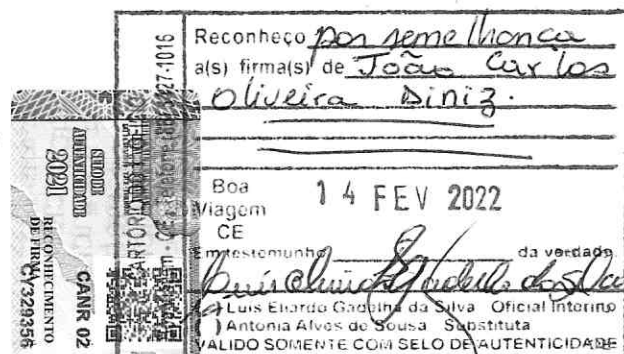 Reconheço por semelhança
a(s) firma(s) de João Carlos
Oliveira Diniz.
Boa
Viagem
CE
14 FEV 2022
Em testemunho da verdade
Luis Eliardo Gadelha da Silva Oficial Interino
( ) Antonia Alves de Sousa Substituta
VALIDO SOMENTE COM SELO DE AUTENTICIDADE
27-1016
SELO DE
AUTENTICIDADE
2021
RECONHECIMENTO
DE FIRMA
CANR 02
CY329356